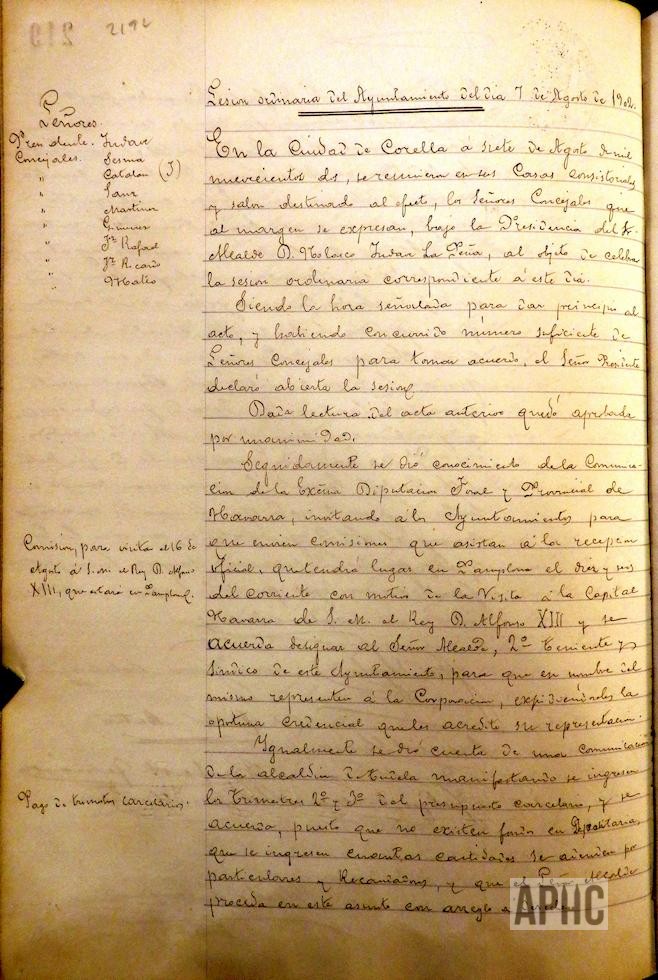 219
219
Sesion ordinaria del Ayuntamiento del dia 7 de Agosto de 1902.
Señores.
Presidente.
Concejales. Sesma
" Catalan (J)
" Sanz
" Martinez
" Gimenez
" Jz. Rafael
" Jz. Ricardo
" Mateo
En la Ciudad de Corella á siete de Agosto de mil
nuevecientos dos, se reunieron en sus Casas consistoriales
y salon destinado al efecto, los Señores Concejales que
al margen se expresan, bajo la Presidencia del Sr.
Alcalde D. Nolasco La Peña, al objeto de celebrar
la sesion ordinaria correspondiente á este dia.
Siendo la hora señalada para dar principio al
acto, y habiendo concurrido número suficiente de
Señores Concejales para tomar acuerdo, el Señor Presidente
declaró abierta la sesion.
Dada lectura del acta anterior quedó aprobada
por unanimidad.
Seguidamente se dió conocimiento de la Comunica-
cion de la Excma Diputacion Foral y Provincial de
Navarra, invitando á los Ayuntamientos para
que envien comisiones que asistan á la recepcion
oficial, que tendrá lugar en Pamplona el diez y seis
del corriente con motivo de la Visita á la Capital
Navarra de S. M. el Rey D. Alfonso XIII y se
acuerda designar al Señor Alcalde, 2º teniente y
Sindico de este Ayuntamiento, para que en nombre del
mismo representen á la Corporacion, expidiendoles la
oportuna credencial que les acredite su representacion.
Comision, para visita el 16 de
Agosto á S. M. el Rey D. Alfonso
XIII, que estará en Pamplona.
Igualmente se dió cuenta de una comunicacion
de la alcaldia de Tudela manifestando se ingresen
los trimestres 2º y 3º del presupuesto carcelario, y se
acuerda, puesto que no existen fondos en Depositaria,
que se ingresen cuantas cantidades se adeuden por
particulares y Recaudadores, y que el Señor Alcalde
proceda en este asunto con arreglo a
Pago de trimestres carcelarios.
APHC